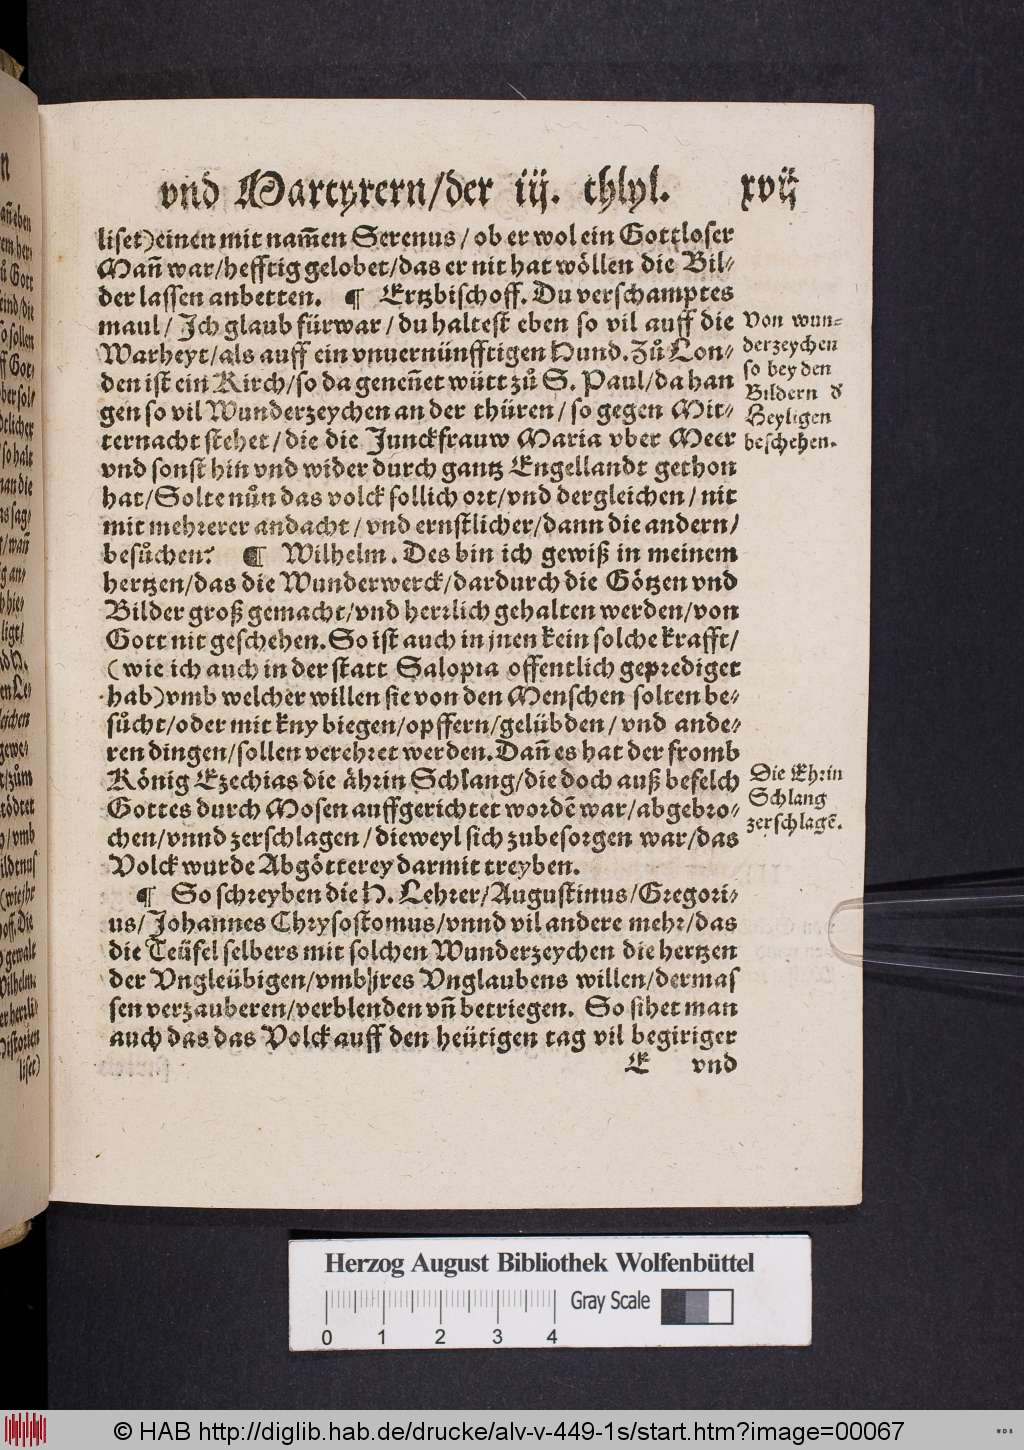 vnd Martyrern/der iij. thlyl. xvij
liset)einen mit nam̄en Serenus/ ob er wol ein Gottloser
Mañ war/hefftig gelobet/das er nit hat wöllen die Bil⸗
der lassen anbetten. ¶ Ertzbischoff. Du verschamptes
maul/ Ich glaub fürwar/ du haltest eben so vil auff die
Warheyt/als auff ein vnuernünfftigen Hund. Zů Lon⸗
den ist ein Kirch/so da geneñet würt zů S. Paul/da han
gen so vil Wunderzeychen an der thüren/ so gegen Mit⸗
ternacht stehet/ die die Junckfrauw Maria vber Meer
vnd sonst hin vnd wider durch gantz Engellandt gethon
hat/Solte nůn das volck sollich ort/vnd dergleichen/ nit
mit mehrerer andacht/ vnd ernstlicher/dann die andern/
besůchen? ¶ Wilhelm. Des bin ich gewiß in meinem
hertzen/das die Wunderwerck/dardurch die Götzen vnd
Bilder groß gemacht/vnd herrlich gehalten werden/von
Gott nit geschehen. So ist auch in jnen kein solche krafft/
(wie ich auch in der statt Salopia offentlich geprediget
hab)vmb welcher willen sie von den Menschen solten be⸗
sůcht/oder mit kny biegen/opffern/gelübden/ vnd ande⸗
ren dingen/sollen verehret werden. Dañ es hat der fromb
König Ezechias die ährin Schlang/die doch auß befelch
Gottes durch Mosen auffgerichtet wordē war/abgebro⸗
chen/vnnd zerschlagen/dieweyl sich zubesorgen war/das
Volck wurde Abgötterey darmit treyben.
¶ So schreyben die H. Lehrer/Augustinus/Gregori⸗
us/ Johannes Chrysostomus/vnnd vil andere mehr/das
die Teüfel selbers mit solchen Wunderzeychen die hertzen
der Vngleübigen/vmb jres Vnglaubens willen/dermas
sen verzauberen/verblenden vñ betriegen. So sihet man
auch das das Volck auff den heütigen tag vil begiriger
E vnd
Von wun⸗
derzeychen
so bey den
Bildern d
Heyligen
beschehen.
Die Ehrin
Schlang
zerschlagē.
Herzog August Bibliothek Wolfenbüttel
0 1 2 3 4 Gray Scale
© HAB http://diglib.hab.de/drucke/alv-v-449-1s/start.htm?image=00067